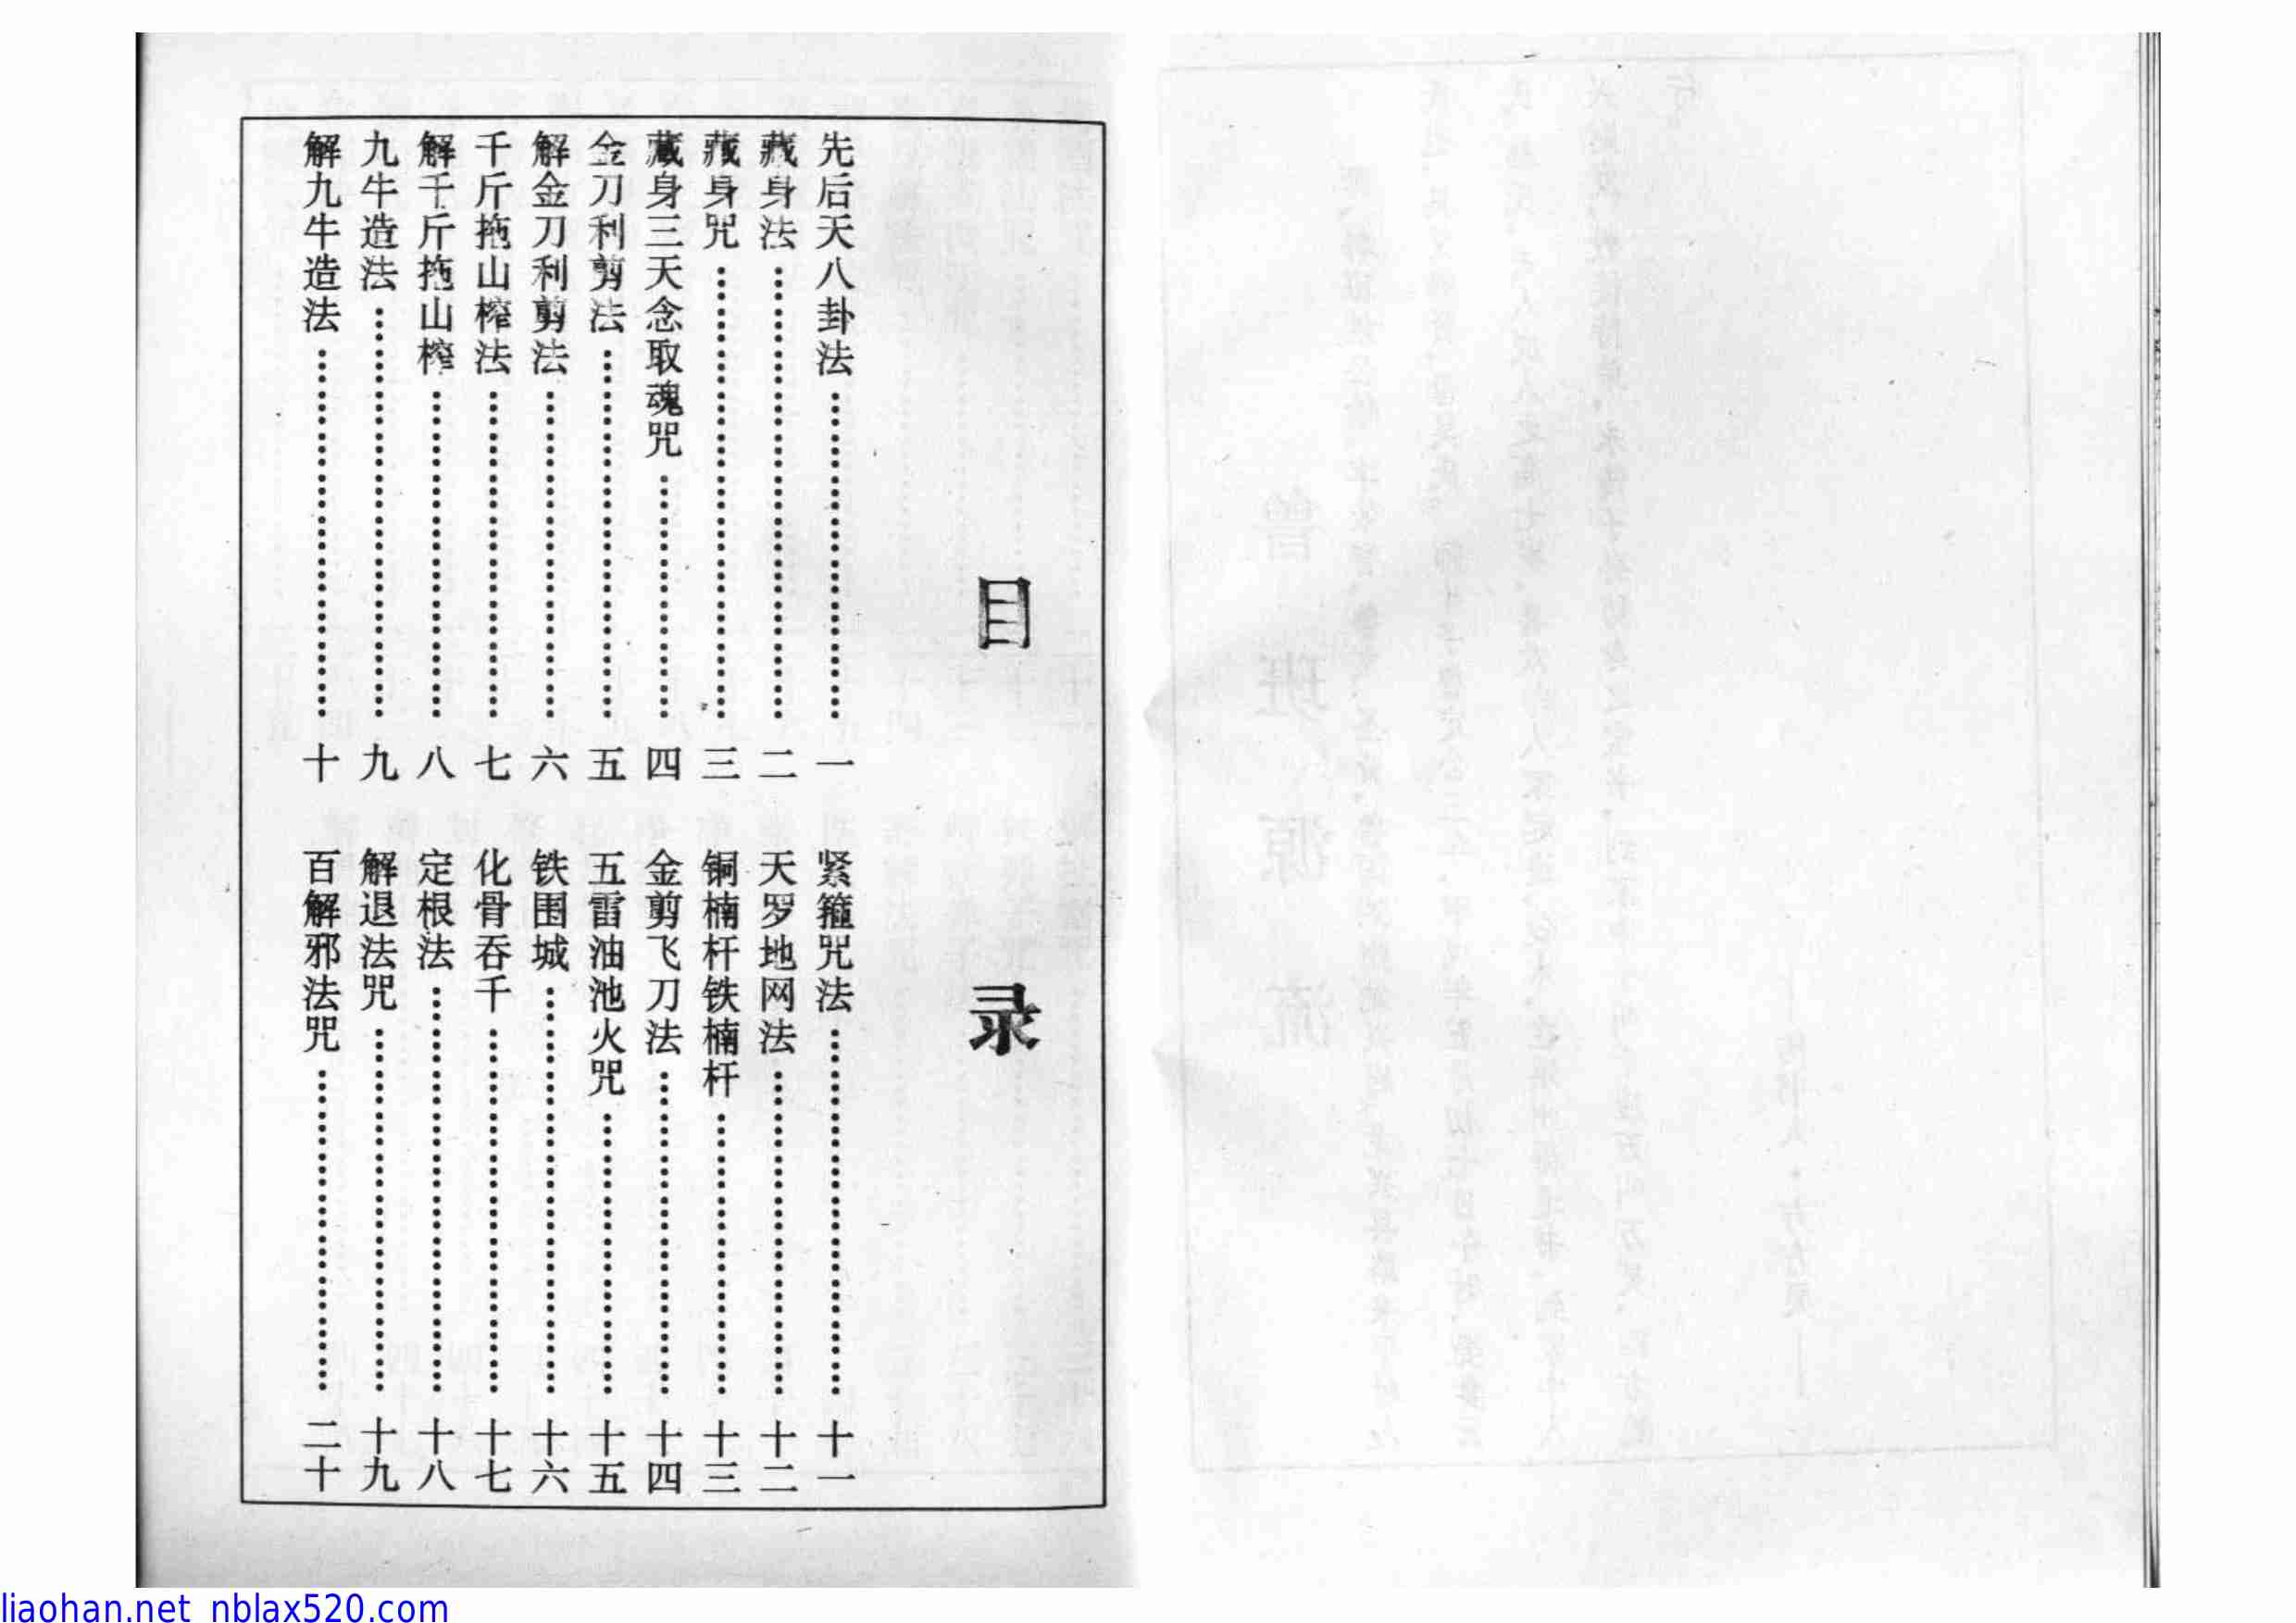 目录
先后天八卦法……一
藏身法……二
藏身咒……三
藏身三天念取魂咒……四
金刀利剪法……五
解金刀利剪法……六
千斤拖山榨法……七
解千斤拖山榨……八
九牛造法……九
解九牛造法……十
紧箍咒法……十一
天罗地网法……十二
铜楠杆铁楠杆……十三
金剪飞刀法……十四
五雷油池火咒……十五
铁围城……十六
化骨吞千……十七
定根法……十八
解退法咒……十九
百解邪法咒……二十
liaohan.net nblax520.com